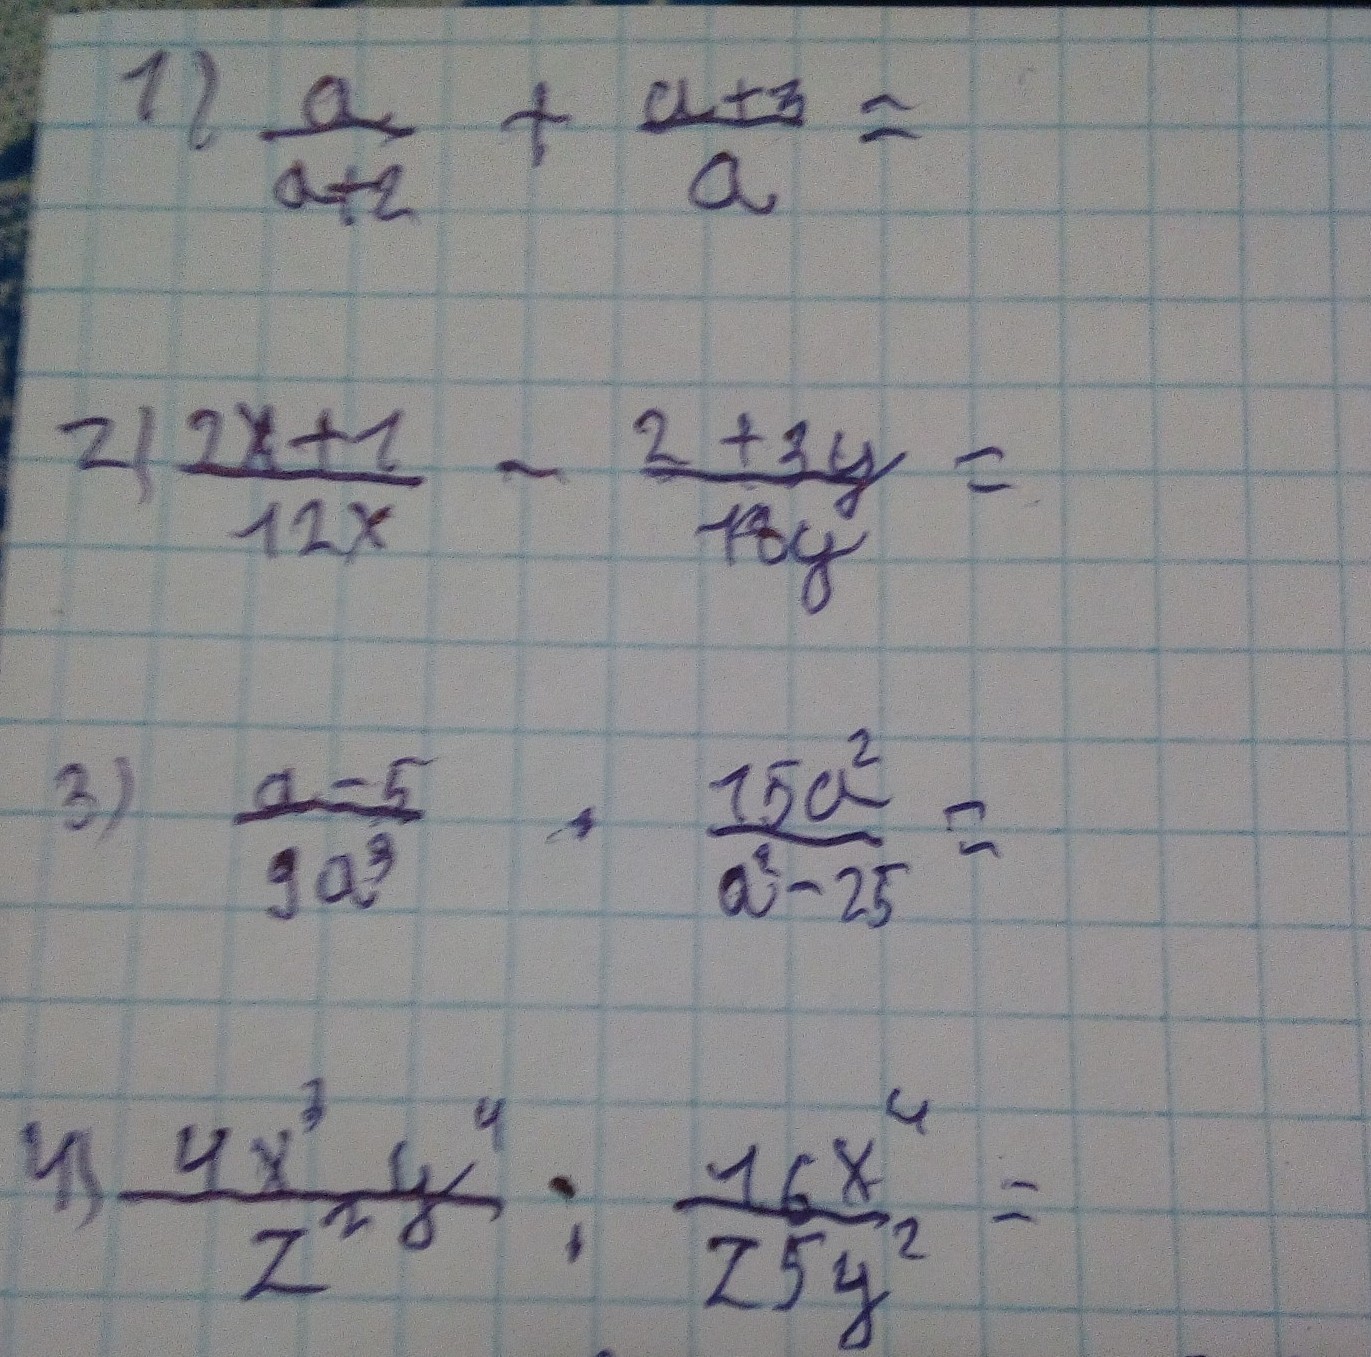 1) a/(a+2) + (a+3)/a =
2) (2x+1)/(12x) - (2+3y)/(18y) =
3) (a-5)/(9a³) · (15a²)/(a²-25) =
4) (4x³y⁴)/(z²) : (16x⁴)/(25y²) =